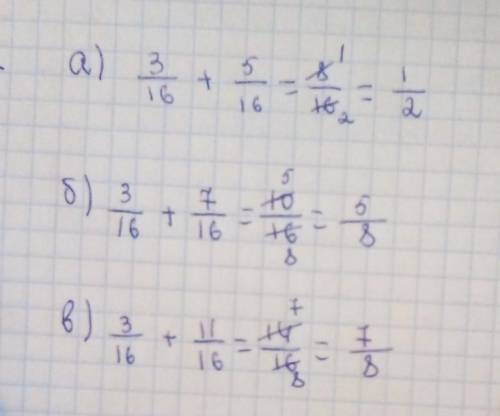 а) 3/16 + 5/16 = 8̶ 1/1̶6̶ 2 = 1/2
б) 3/16 + 7/16 = 1̶0̶ 5/1̶6̶ 8 = 5/8
в) 3/16 + 11/16 = 1̶4̶ 7/1̶6̶ 8 = 7/8